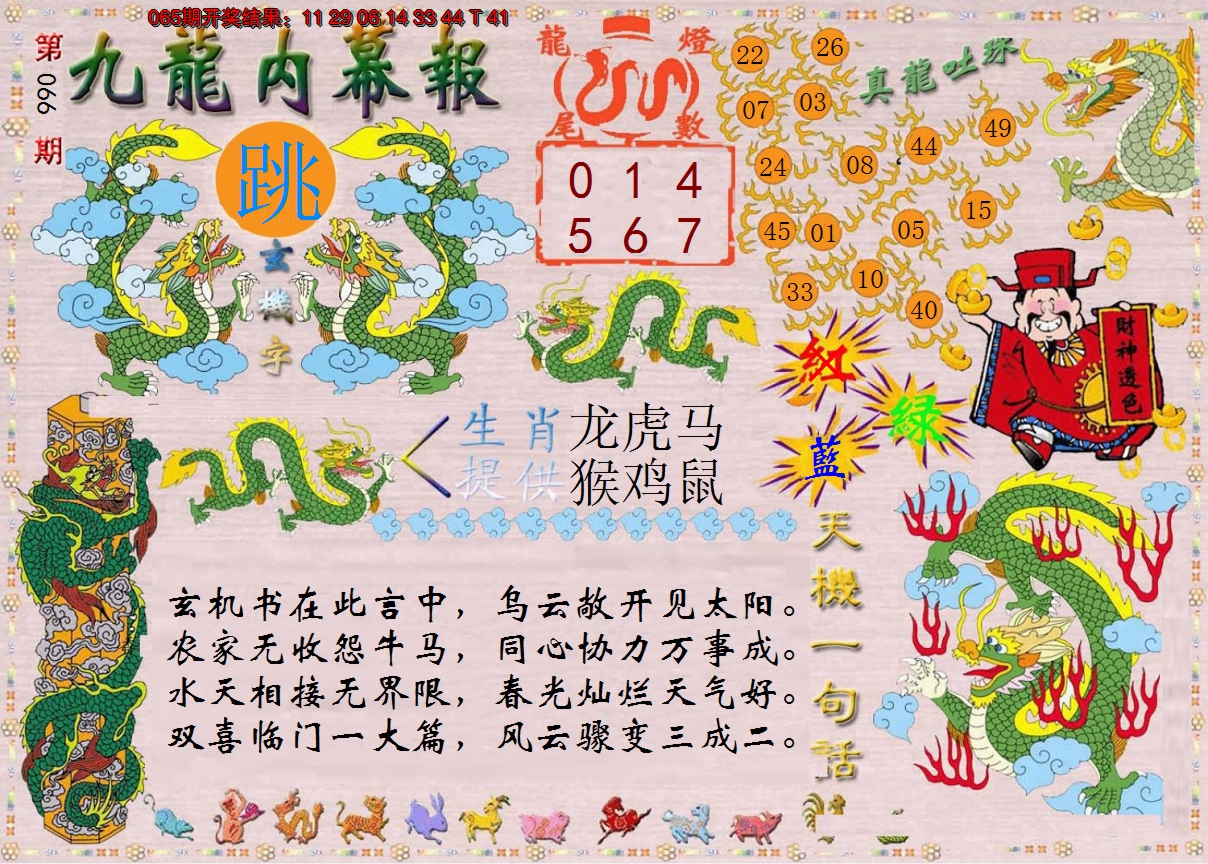 065期开奖结果：11 29 06 14 33 44 T 41
第
066
期
九龍内幕報
跳
玄
機
字
龍
燈
尾
數
0 1 4
5 6 7
真龍吐珠
22
26
07
03
24
08
44
49
45
01
05
15
33
10
40
財神透色
紅
綠
藍
生肖
提供
龙虎马
猴鸡鼠
天機一句話
玄机书在此言中，乌云敞开见太阳。
农家无收怨牛马，同心协力万事成。
水天相接无界限，春光灿烂天气好。
双喜临门一大篇，风云骤变三成二。